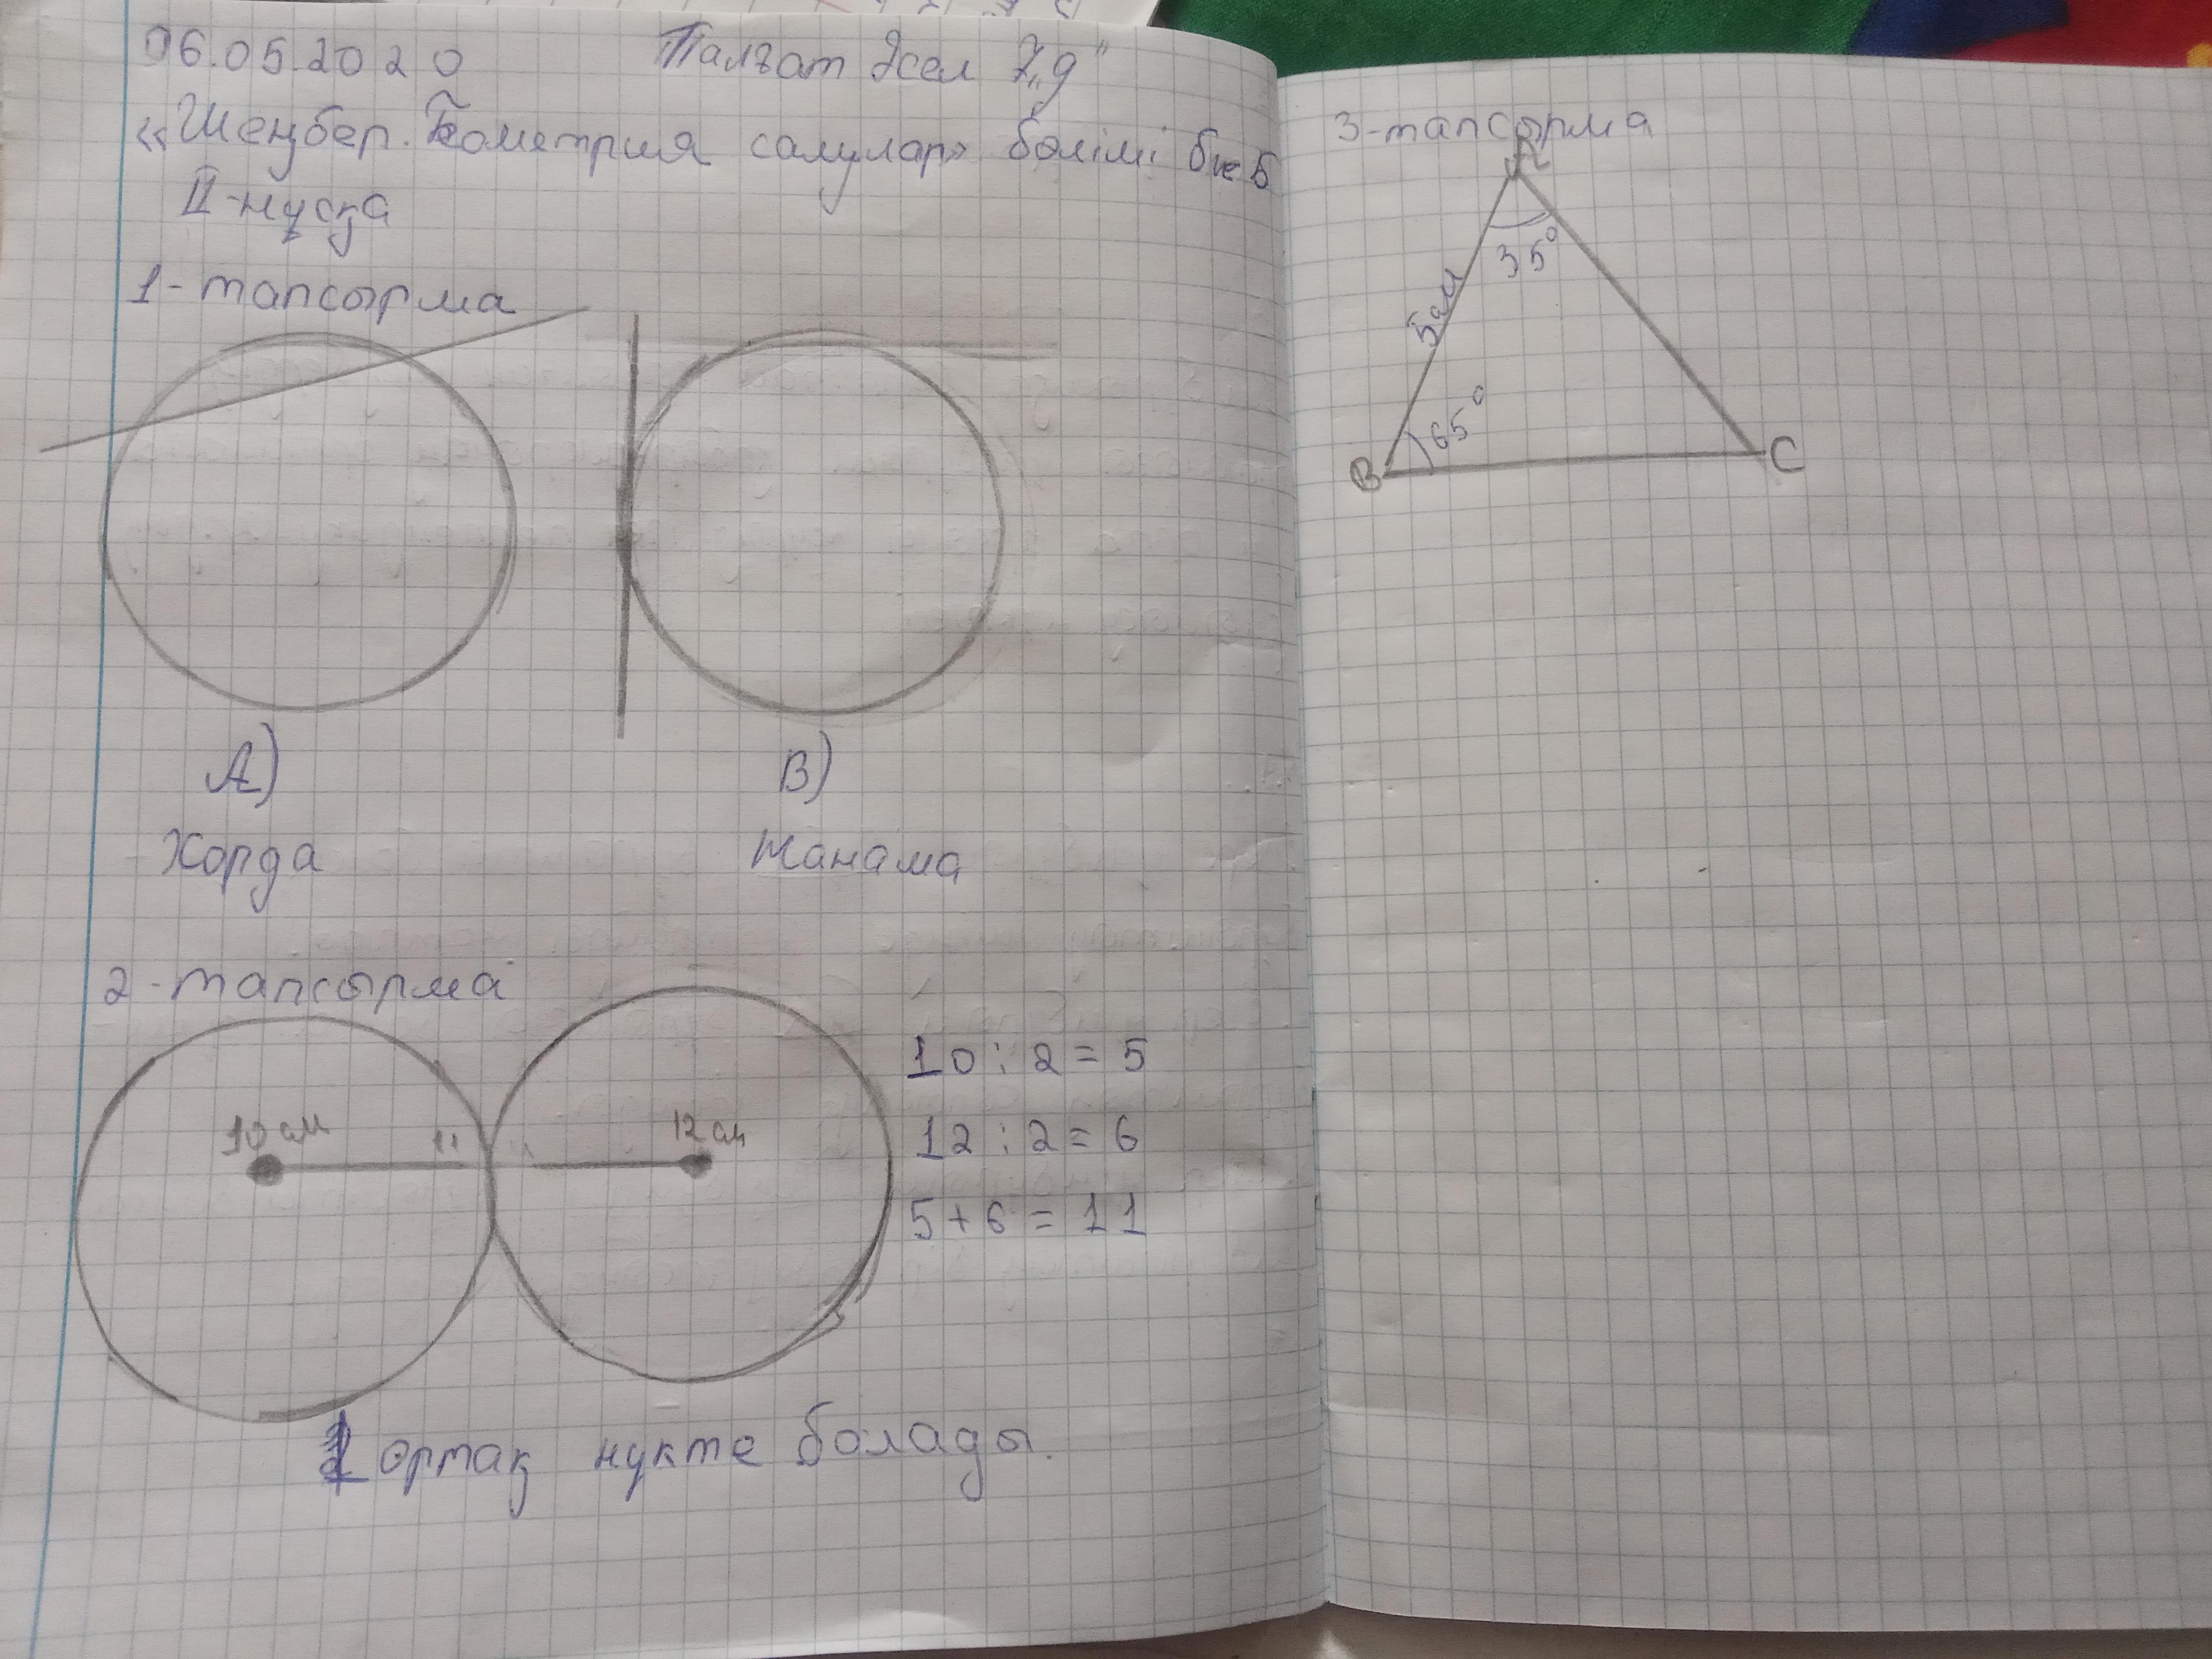 06.05.2020 Талғат Әсел 7 „д"
«Шеңбер. Геометрия салулар» бөлімі бже Б
II-нұсқа
1-тапсырма
А) В)
Хорда Жанама
2-тапсырма
10 см 11 12 см
10 : 2 = 5
12 : 2 = 6
5 + 6 = 11
1 ортақ нүкте болады.
3-тапсырма
А
35°
5 см
65°
В С